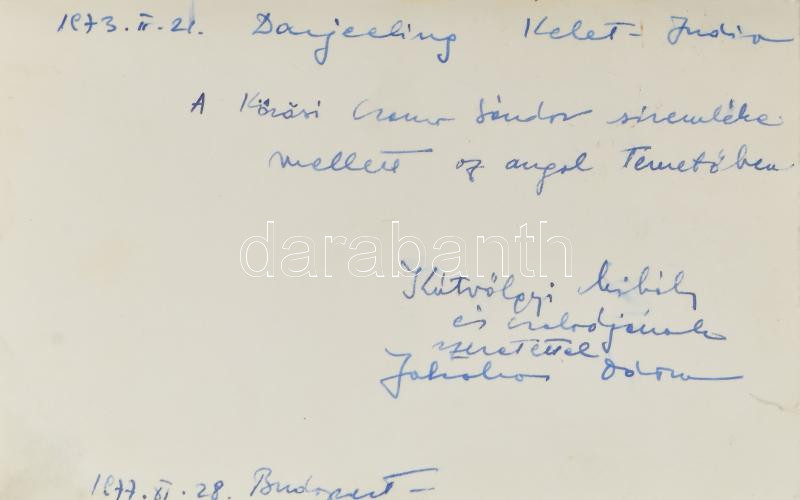 1973.II.21. Darjeeling Kelet-India
A Körösi Csoma Sándor siremléke
mellett az angol Temetőben
darabanth
Kútvölgyi Mihály
és családjának
szeretettel
Jakabos Ödön
1977.XI.28. Budapest-